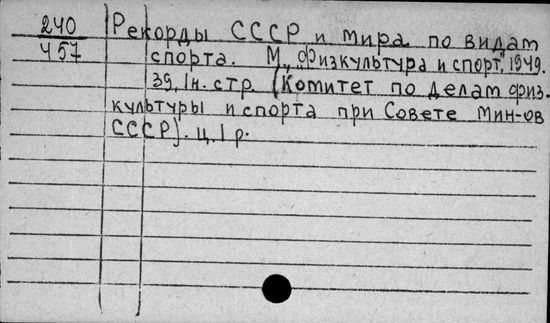 240 Рекорды СССР и мира по видам
457 спорта. М., Физкультура и спорт, 1949.
39, 1 н. стр. (Комитет по делам физ-
культуры и спорта при Совете Мин-ов
СССР). ц. 1 р.